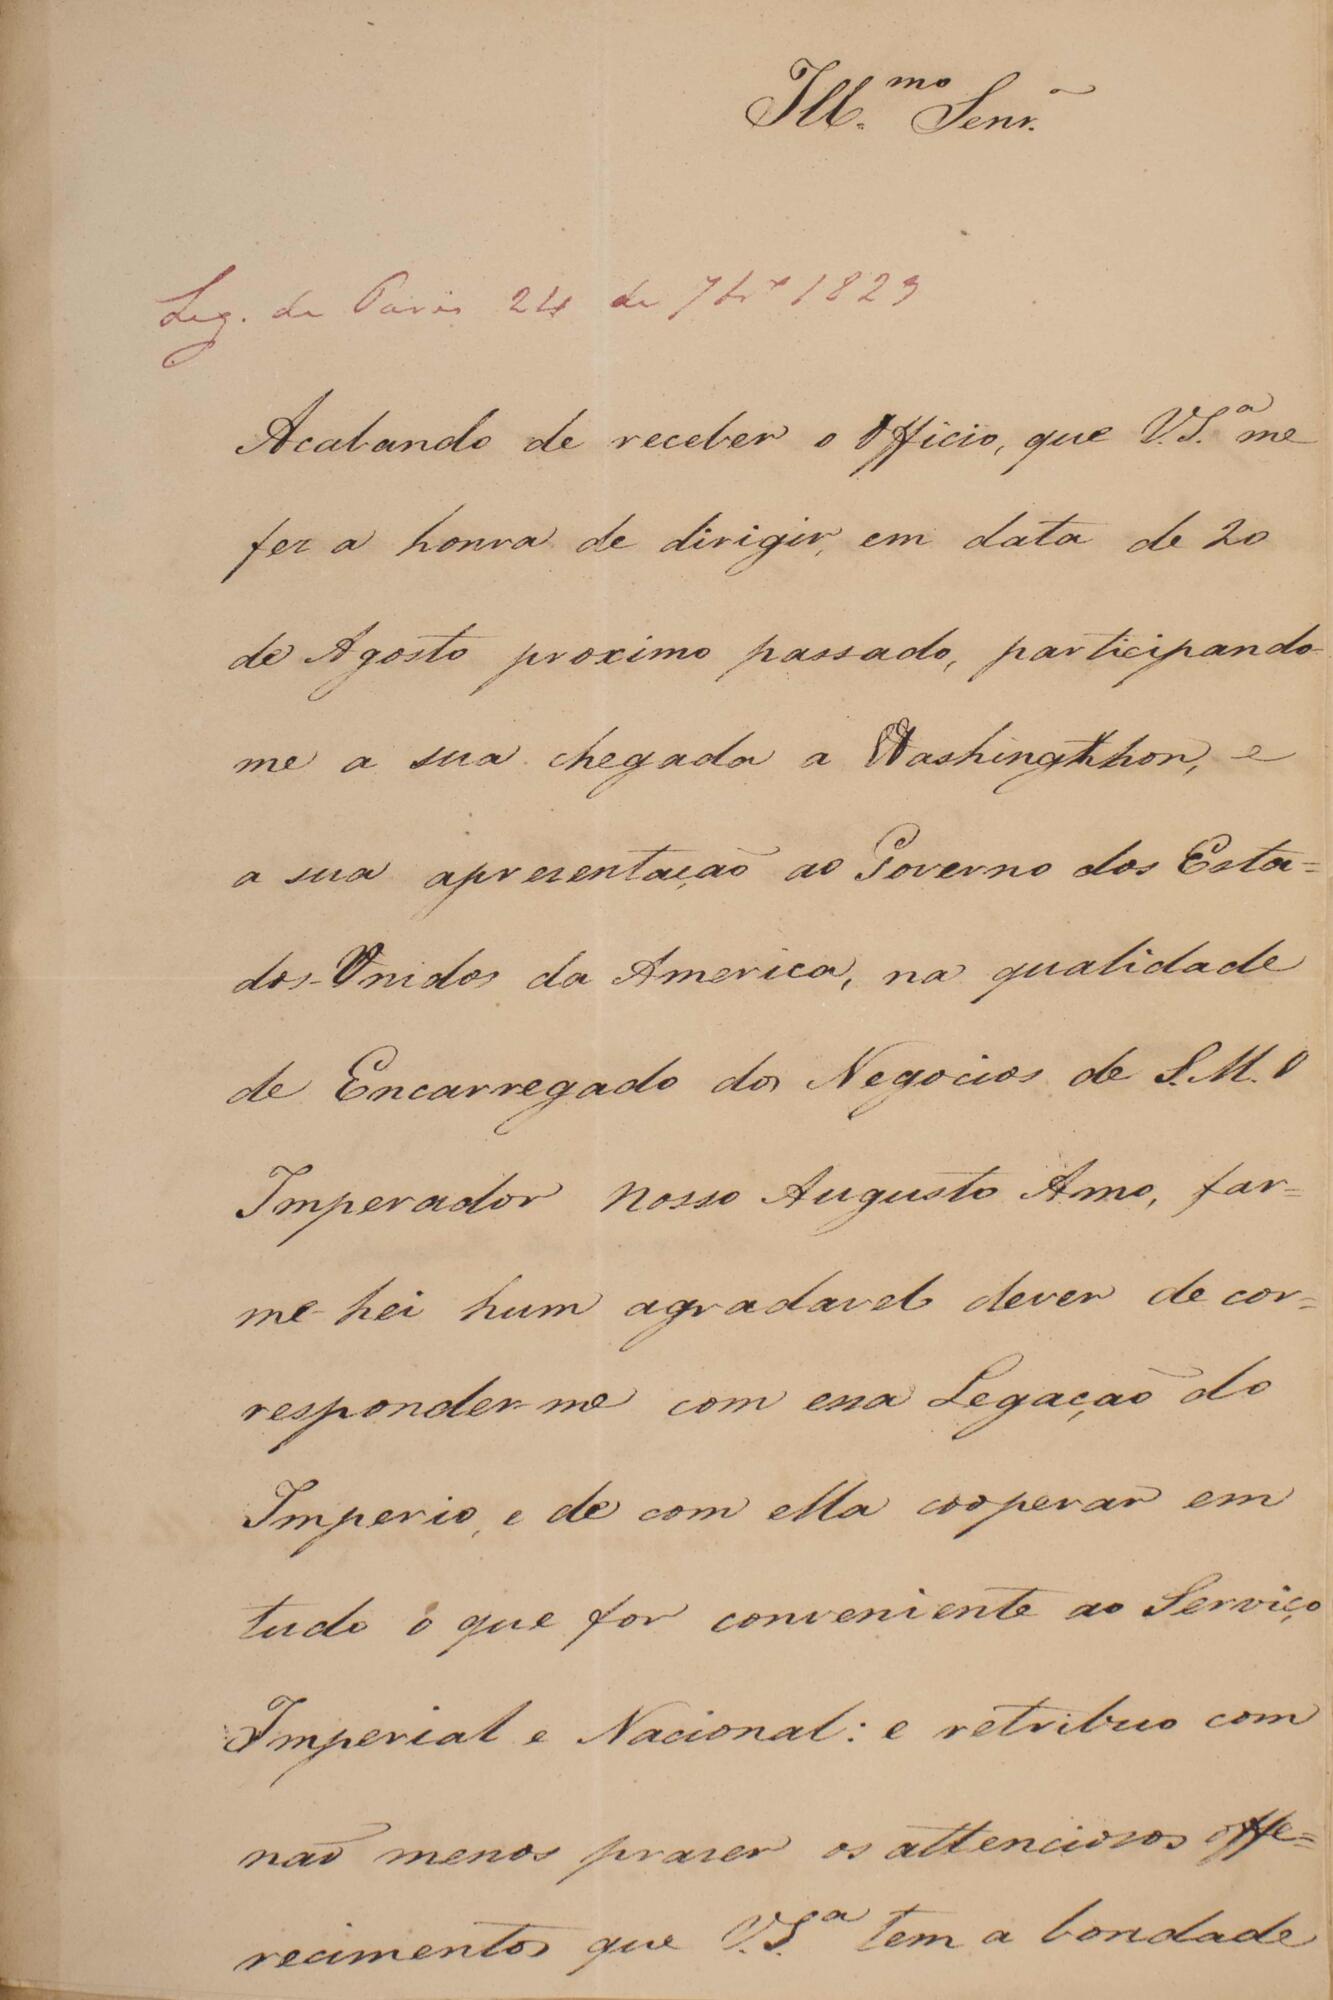 Ill.mo Senr.
Leg. de Paris 24 de 7br.º 1829
Acabando de receber o Officio, que V.S.ª me
fez a honra de dirigir, em data de 20
de Agosto proximo passado, participando-
me a sua chegada a Washingthon, e
a sua apresentação ao Governo dos Esta=
dos-Unidos da America, na qualidade
de Encarregado dos Negocios de S.M.O
Imperador Nosso Augusto Amo, far=
me-hei hum agradavel dever de cor=
responder-me com essa Legação do
Imperio, e de com ella cooperar em
tudo o que for conveniente ao Serviço
Imperial e Nacional: e retribuo com
não menos prazer os attenciosos offe=
recimentos que V.S.ª tem a bondade